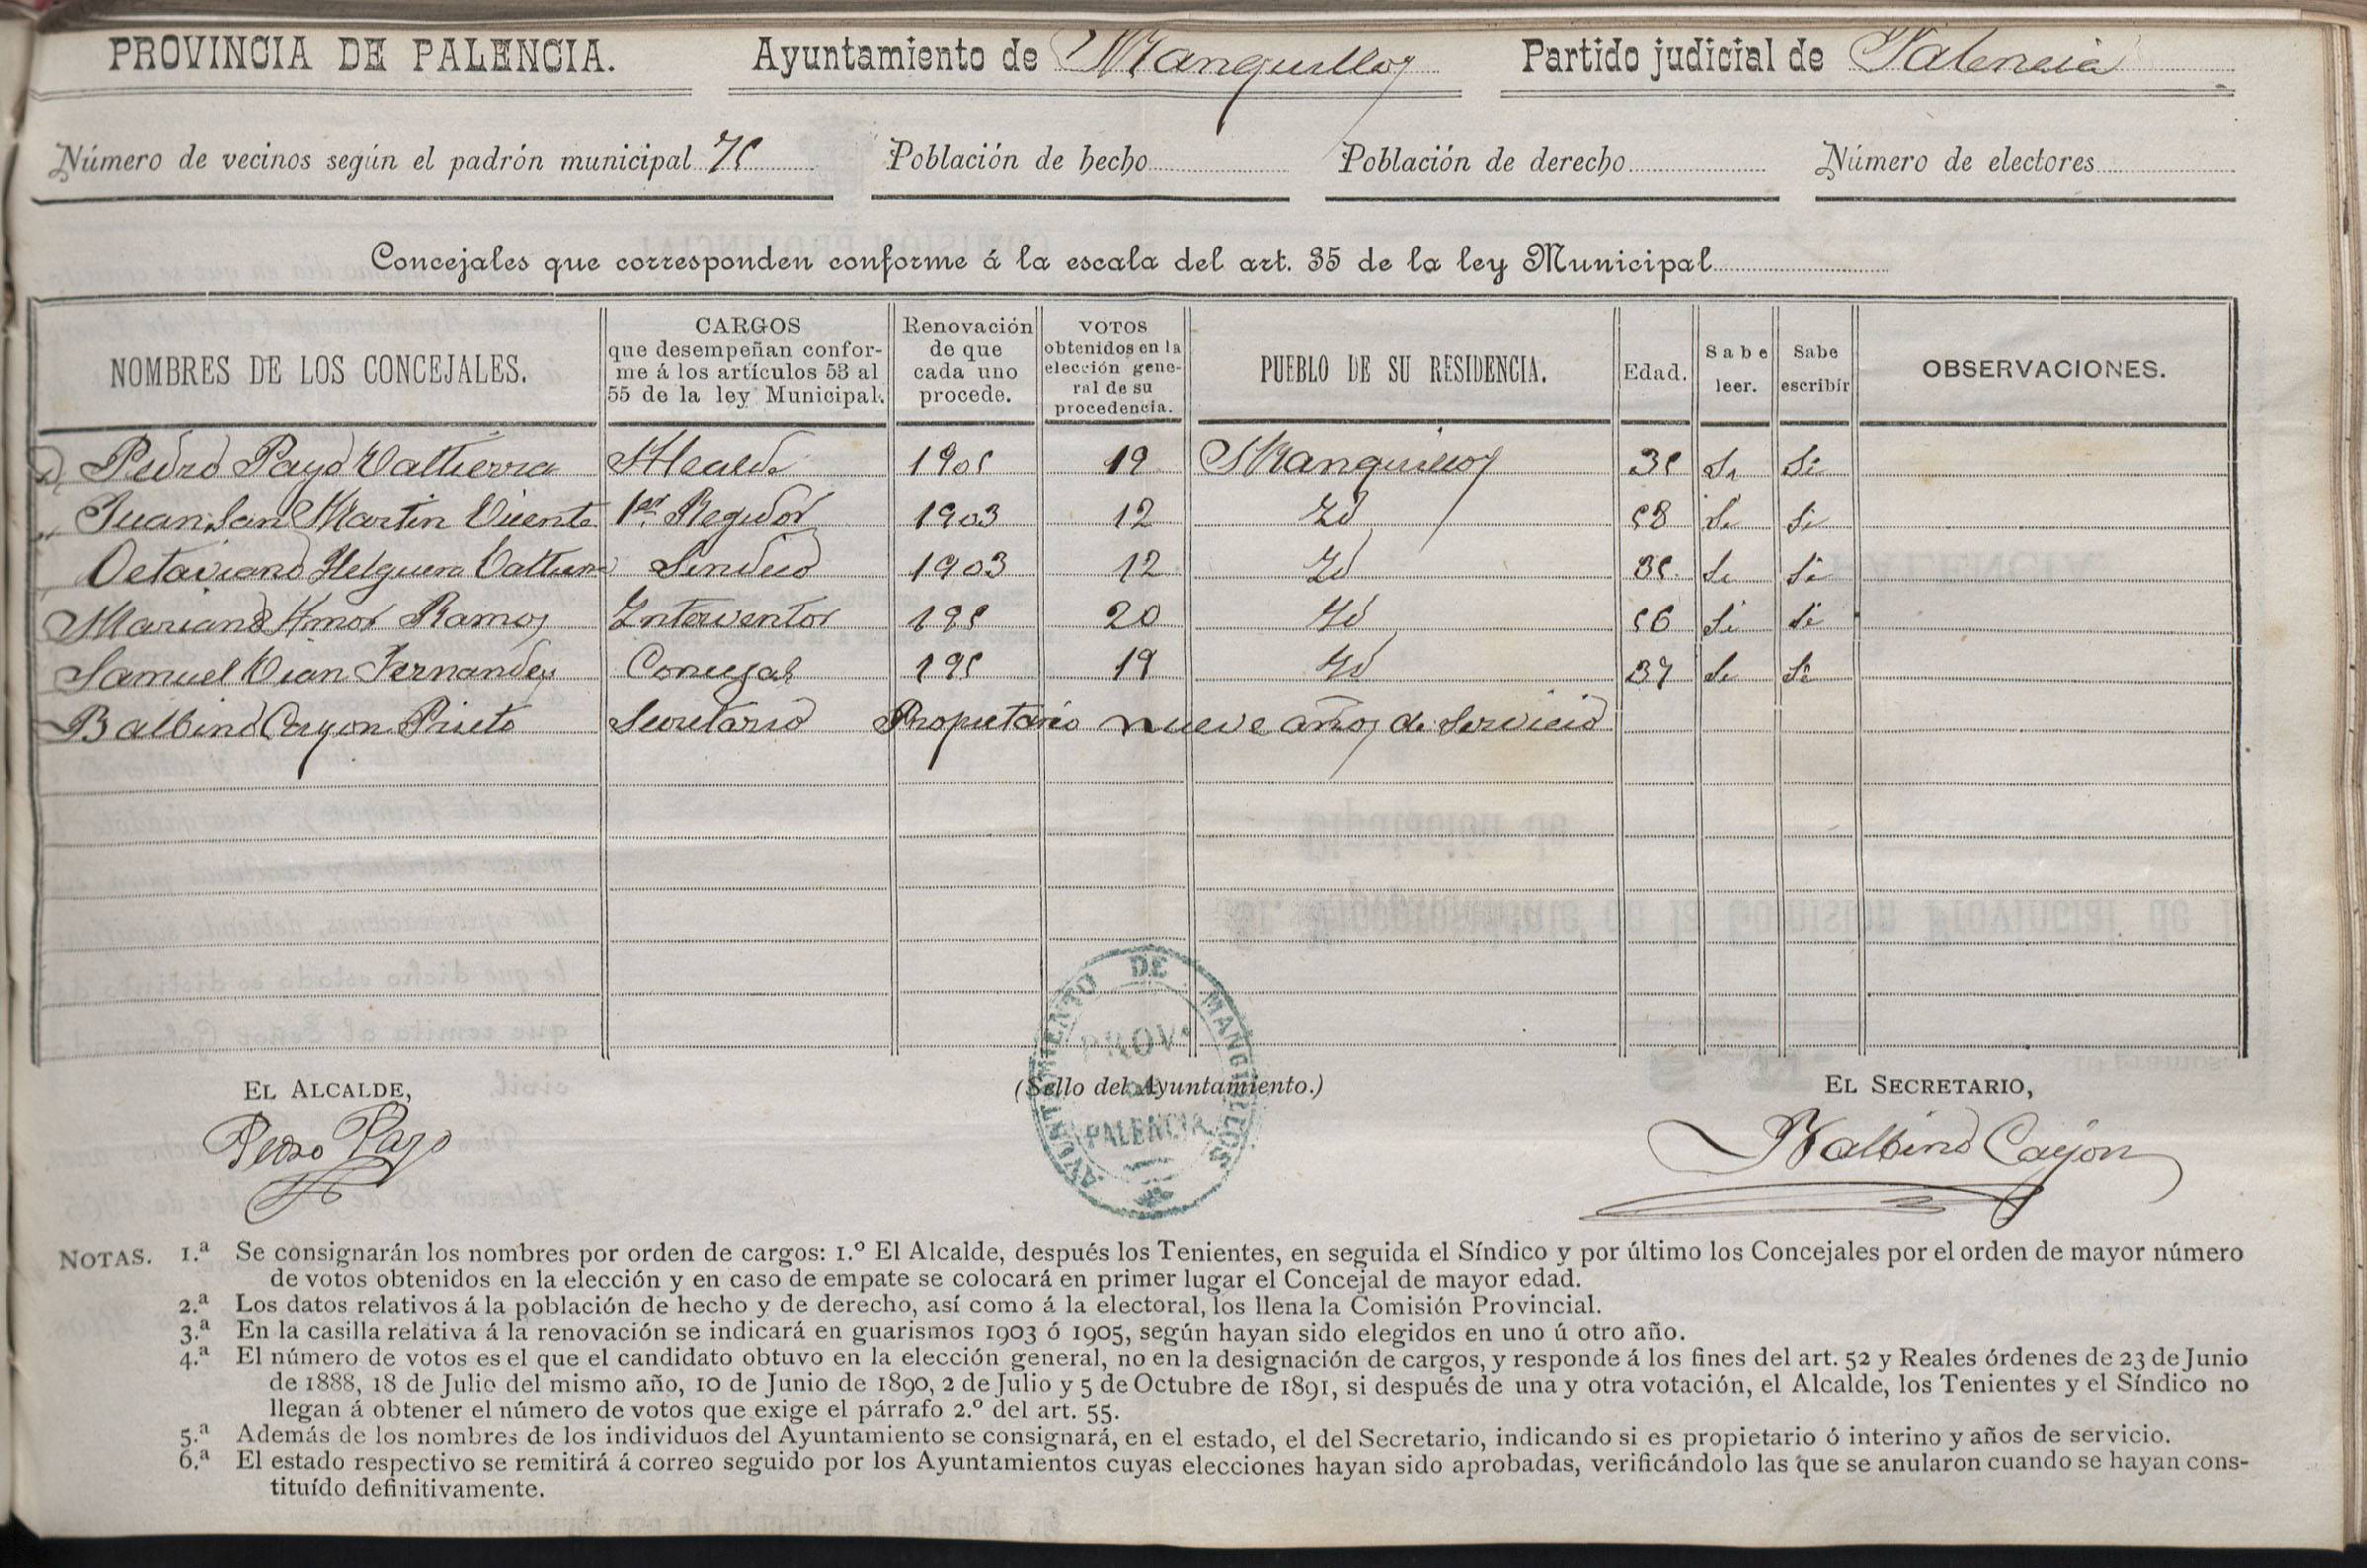 PROVINCIA DE PALENCIA. Ayuntamiento de Manquillos Partido judicial de Palencia
Número de vecinos según el padrón municipal 75 Población de hecho Población de derecho Número de electores
Concejales que corresponden conforme á la escala del art. 35 de la ley Municipal
NOMBRES DE LOS CONCEJALES. CARGOS que desempeñan conforme á los artículos 53 al 55 de la ley Municipal. Renovación de que cada uno procede. VOTOS obtenidos en la elección general de su procedencia. PUEBLO DE SU RESIDENCIA. Edad. Sabe leer. Sabe escribir OBSERVACIONES.
Pedro Payo Valtierra Alcalde 1905 19 Manquillos 35 Si Si
Juan San Martin Vicente 1er Regidor 1903 12 Id 58 Si Si
Octaviano Helguera Valtierra Sindico 1903 12 Id 35 Si Si
Mariano Amor Ramos Interventor 195 20 Id 56 Si Si
Samuel Vian Fernandez Concejal 195 19 Id 37 Si Si
Balbino Cayon Prieto Secretario Propietario nueve años de Servicio
EL ALCALDE, (Sello del Ayuntamiento.) EL SECRETARIO,
AYUNTAMIENTO DE MANQUILLOS
PROV.ª DE PALENCIA
Pedro Payo Balbino Cayón
NOTAS. 1.ª Se consignarán los nombres por orden de cargos: 1.º El Alcalde, después los Tenientes, en seguida el Síndico y por último los Concejales por el orden de mayor número
de votos obtenidos en la elección y en caso de empate se colocará en primer lugar el Concejal de mayor edad.
2.ª Los datos relativos á la población de hecho y de derecho, así como á la electoral, los llena la Comisión Provincial.
3.ª En la casilla relativa á la renovación se indicará en guarismos 1903 ó 1905, según hayan sido elegidos en uno ú otro año.
4.ª El número de votos es el que el candidato obtuvo en la elección general, no en la designación de cargos, y responde á los fines del art. 52 y Reales órdenes de 23 de Junio
de 1888, 18 de Julio del mismo año, 10 de Junio de 1890, 2 de Julio y 5 de Octubre de 1891, si después de una y otra votación, el Alcalde, los Tenientes y el Síndico no
llegan á obtener el número de votos que exige el párrafo 2.º del art. 55.
5.ª Además de los nombres de los individuos del Ayuntamiento se consignará, en el estado, el del Secretario, indicando si es propietario ó interino y años de servicio.
6.ª El estado respectivo se remitirá á correo seguido por los Ayuntamientos cuyas elecciones hayan sido aprobadas, verificándolo las que se anularon cuando se hayan cons-
tituído definitivamente.